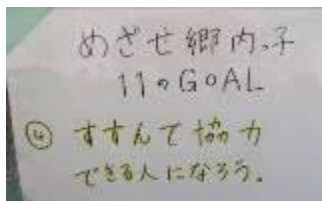 めざせ郷内っ子
11のGOAL
④ すすんで協力
できる人になろう。